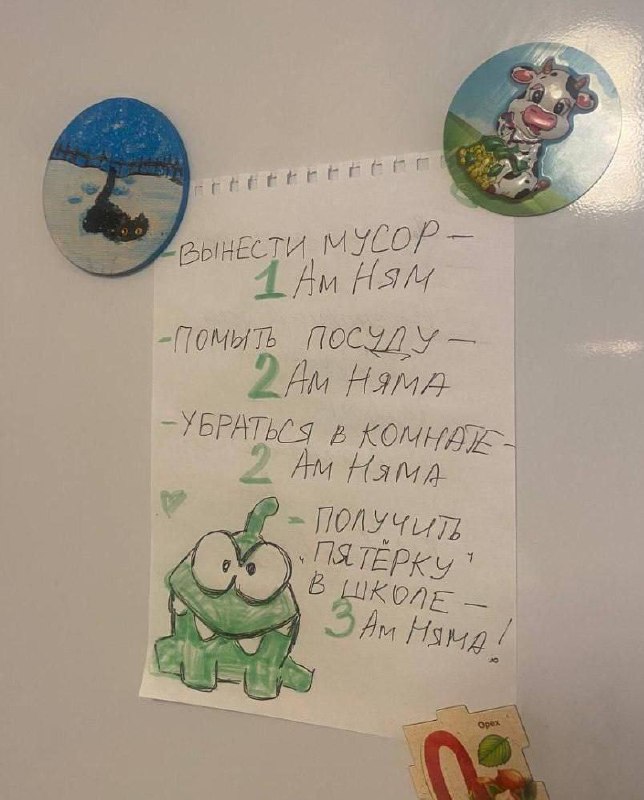 - ВЫНЕСТИ МУСОР —
1 Ам Ням
- ПОМЫТЬ ПОСУДУ —
2 Ам Няма
- УБРАТЬСЯ В КОМНАТЕ -
2 Ам Няма
- ПОЛУЧИТЬ
"ПЯТЁРКУ"
В ШКОЛЕ —
3 Ам Няма!
Орех
О